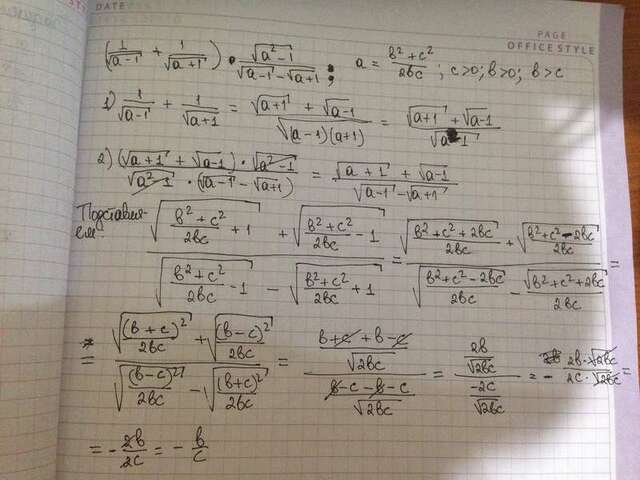 DATE
PAGE
OFFICE STYLE
(1/√(a-1) + 1/√(a+1)) · √(a²-1)/(√(a-1) - √(a+1)) ; a = (b²+c²)/2bc ; c>0; b>0; b>c
1) 1/√(a-1) + 1/√(a+1) = (√(a+1) + √(a-1))/√((a-1)(a+1)) = (√(a+1) + √(a-1))/√(a²-1)
2) ((√(a+1) + √(a-1)) · √(a²-1))/(√(a²-1) · (√(a-1) - √(a+1))) = (√(a+1) + √(a-1))/(√(a-1) - √(a+1))
Подставля-
ем: (√((b²+c²)/2bc + 1) + √((b²+c²)/2bc - 1))/(√((b²+c²)/2bc - 1) - √((b²+c²)/2bc + 1)) = (√((b²+c²+2bc)/2bc) + √((b²+c²-2bc)/2bc))/(√((b²+c²-2bc)/2bc) - √((b²+c²+2bc)/2bc)) =
= (√((b+c)²/2bc) + √((b-c)²/2bc))/(√((b-c)²/2bc) - √((b+c)²/2bc)) = ((b+c+b-c)/√2bc)/((b-c-b-c)/√2bc) = (2b/√2bc)/(-2c/√2bc) = - (2b·√2bc)/(2c·√2bc) =
= - 2b/2c = - b/c